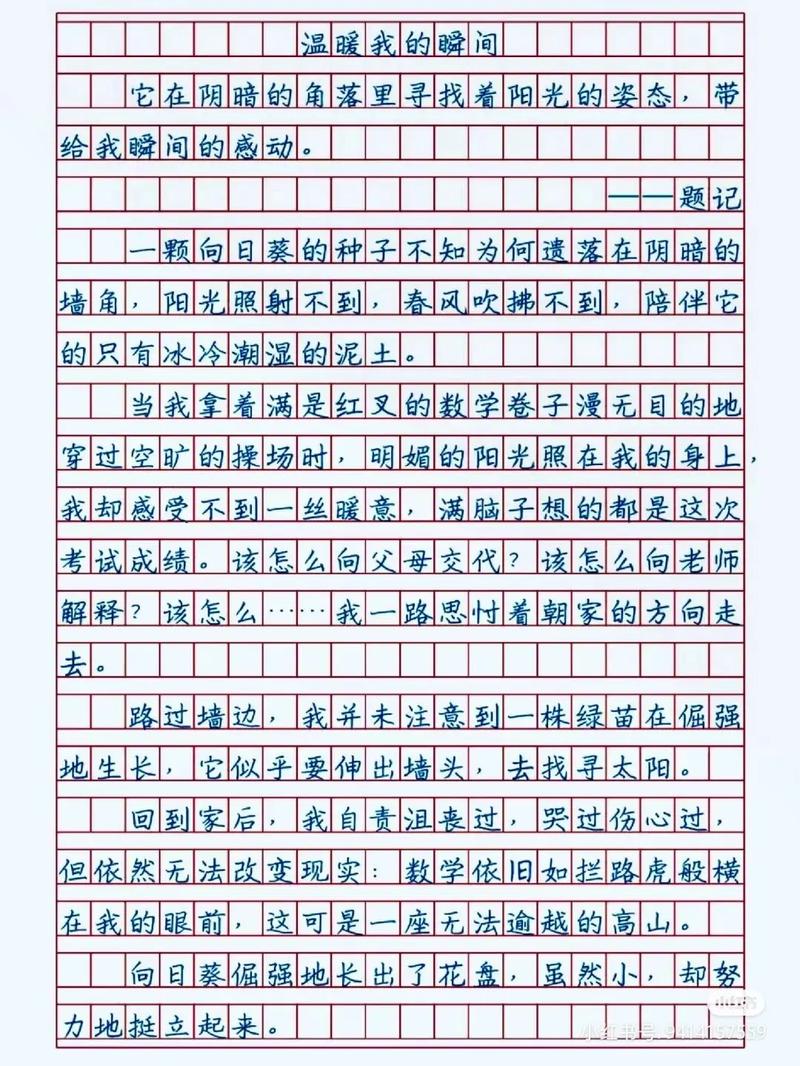 温暖我的瞬间
它在阴暗的角落里寻找着阳光的姿态，带
给我瞬间的感动。
——题记
一颗向日葵的种子不知为何遗落在阴暗的
墙角，阳光照射不到，春风吹拂不到，陪伴它
的只有冰冷潮湿的泥土。
当我拿着满是红叉的数学卷子漫无目的地
穿过空旷的操场时，明媚的阳光照在我的身上，
我却感受不到一丝暖意，满脑子想的都是这次
考试成绩。该怎么向父母交代？该怎么向老师
解释？该怎么……我一路思忖着朝家的方向走
去。
路过墙边，我并未注意到一株绿苗在倔强
地生长，它似乎要伸出墙头，去找寻太阳。
回到家后，我自责沮丧过，哭过伤心过，
但依然无法改变现实：数学依旧如拦路虎般横
在我的眼前，这可是一座无法逾越的高山。
向日葵倔强地长出了花盘，虽然小，却努
力地挺立起来。
小红书
小红书号：9414157559